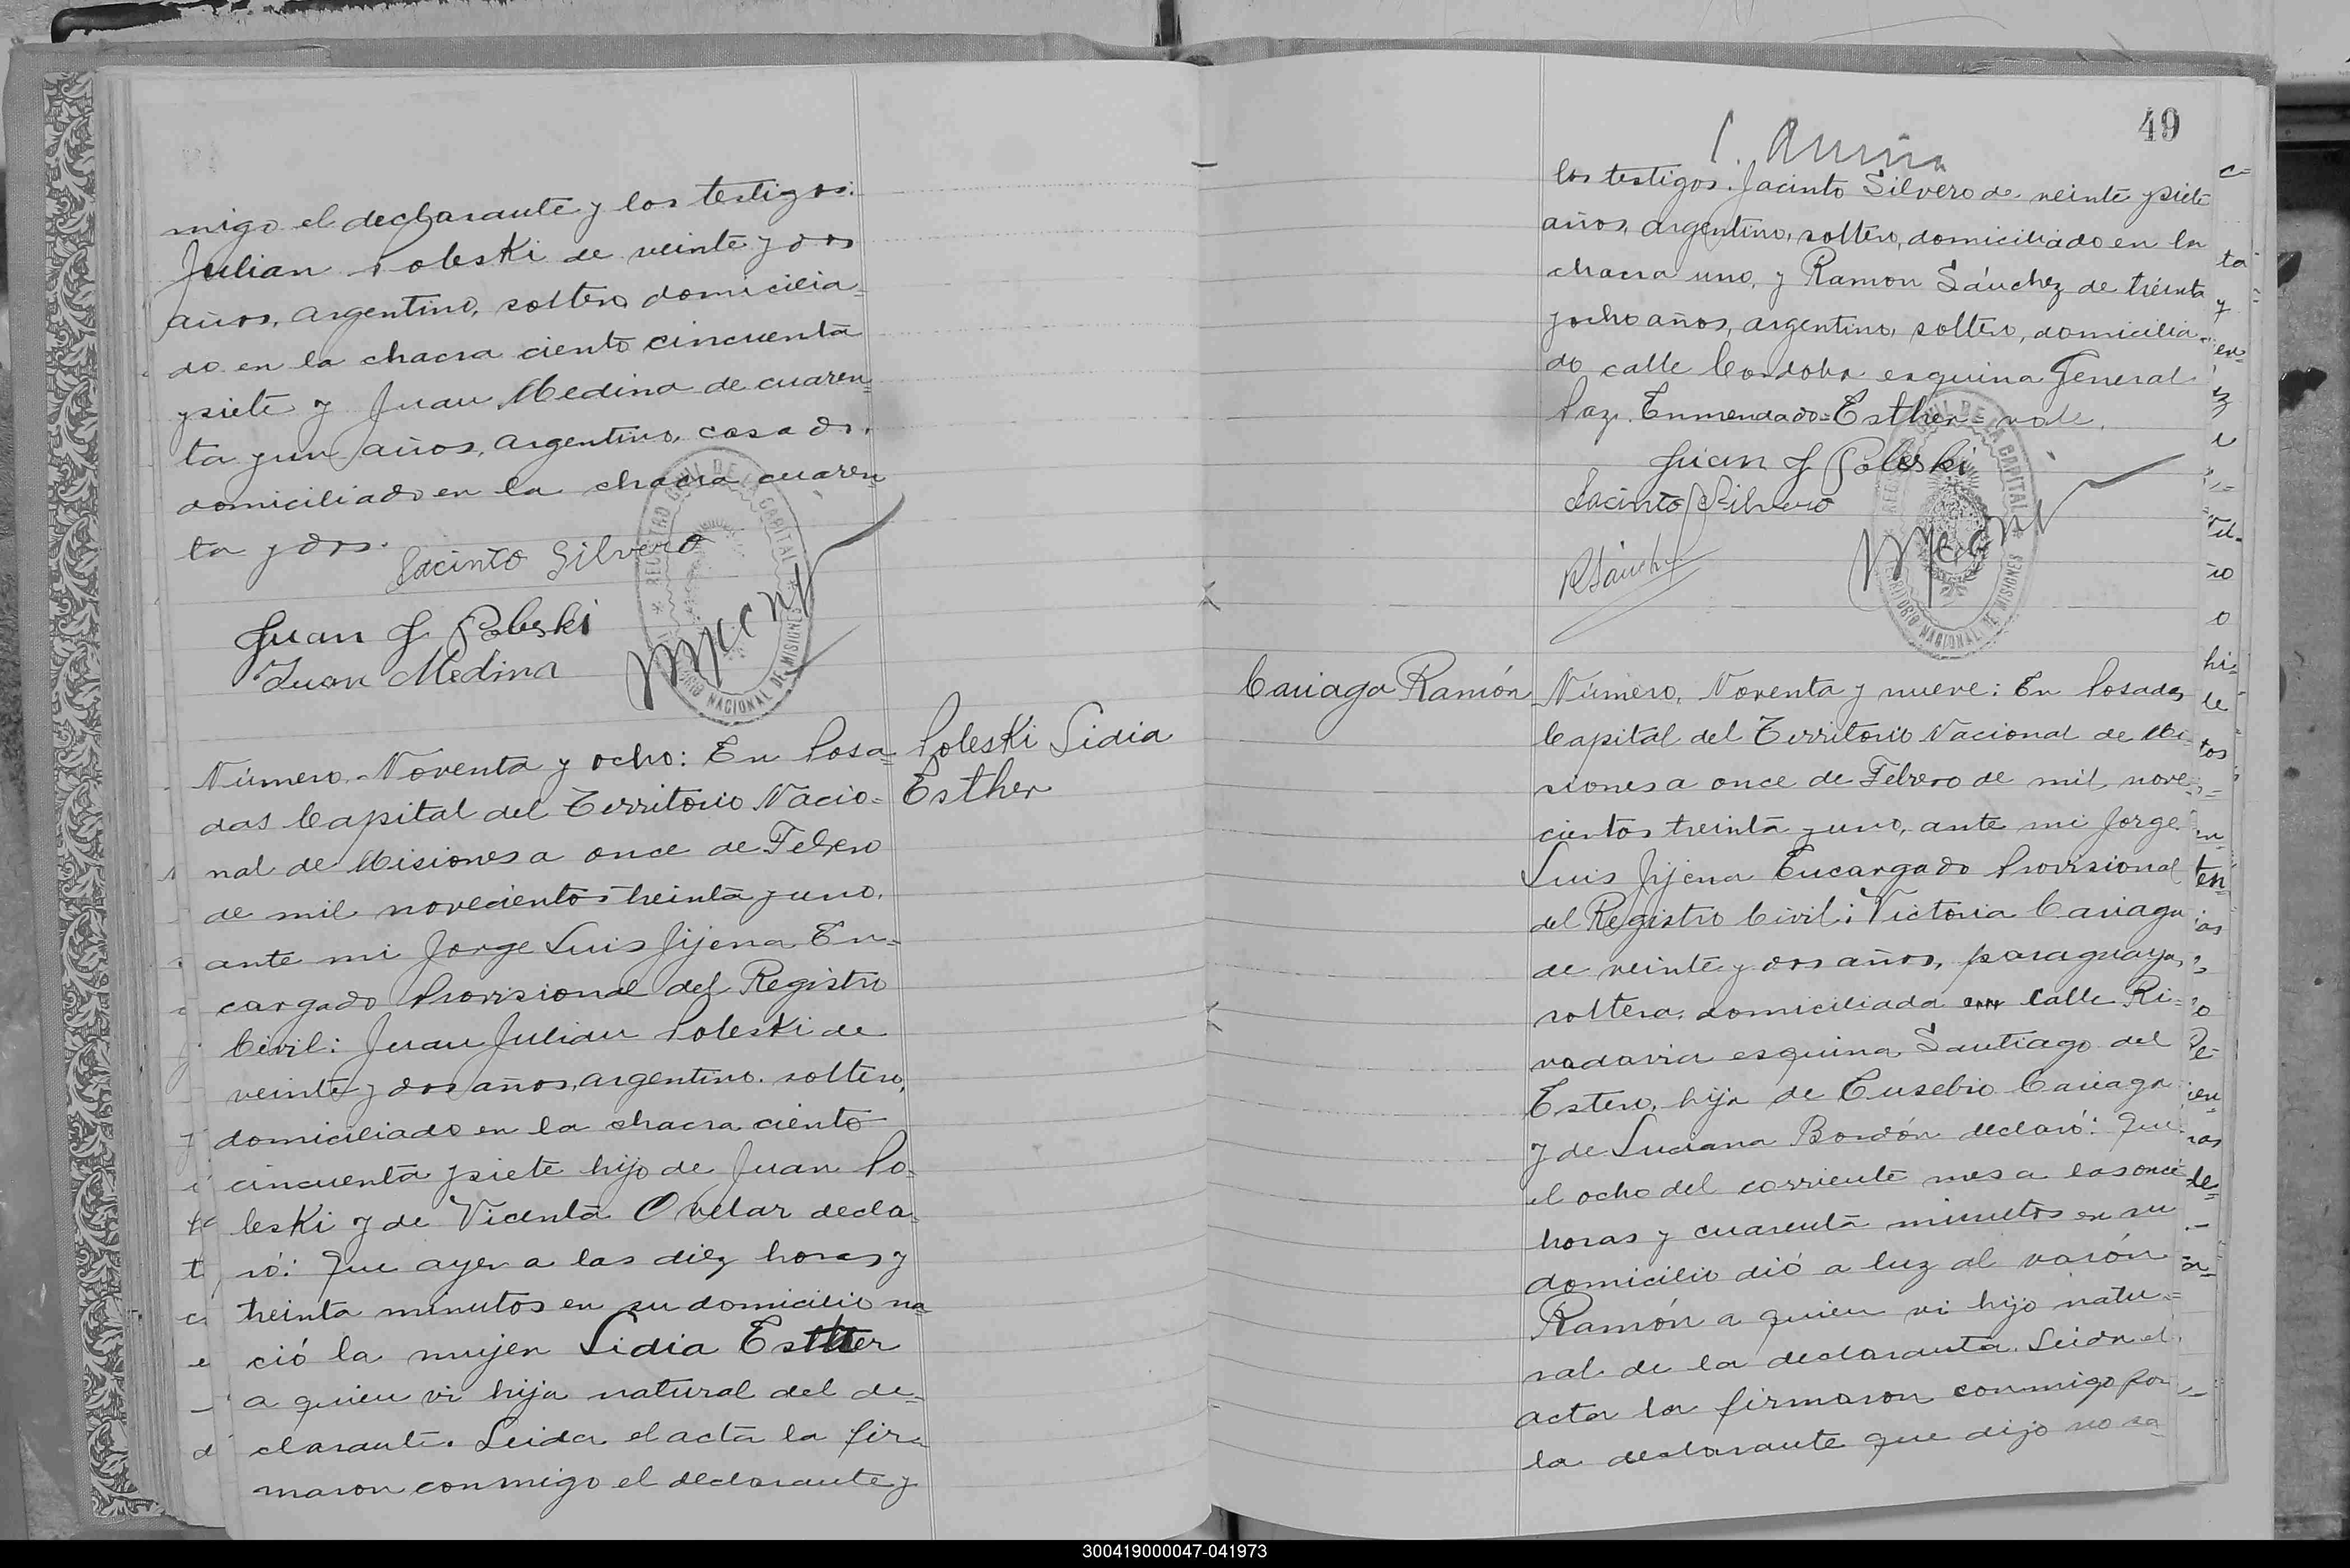 migo el declarante y los testigos:
Julian Poleski de veinte y dos
años, argentino, soltero domicilia=
do en la chacra ciento cincuenta
y siete y Juan Medina de cuaren=
ta y un años, argentino, casado,
domiciliado en la chacra cuaren=
ta y dos.
Jacinto Silvero
Juan J Poleski
Juan Medina
REGISTRO CIVIL DE LA CAPITAL
TERRITORIO NACIONAL DE MISIONES
Poleski Lidia
Esther
Número. Noventa y ocho: En Posa=
das Capital del Territorio Nacio=
nal de Misiones a once de Febrero
de mil novecientos treinta y uno,
ante mi Jorge Luis Jijena En=
cargado Provisional del Registro
Civil: Juan Julian Poleski de
veinte y dos años, argentino, soltero,
domiciliado en la chacra ciento
cincuenta y siete hijo de Juan Po=
leski y de Vicenta Ovelar decla=
ró: Que ayer a las diez horas y
treinta minutos en su domicilio na=
ció la mujer Lidia Esther
a quien vi hija natural del de=
clarante. Leida el acta la fir=
maron conmigo el declarante y
49
los testigos: Jacinto Silvero de veinte y siete
años, argentino, soltero, domiciliado en la
chacra uno, y Ramon Sánchez de treinta
y ocho años, argentino, soltero, domicilia=
do calle Cordoba esquina General
Paz. Enmendado=Esther=vale.
Juan J Poleski
Jacinto Silvero
RSánchez
REGISTRO CIVIL DE LA CAPITAL
TERRITORIO NACIONAL DE MISIONES
Cariaga Ramón
Número. Noventa y nueve: En Posadas
Capital del Territorio Nacional de Mi=
siones a once de Febrero de mil nove=
cientos treinta y uno, ante mi Jorge
Luis Jijena Encargado Provisional
del Registro Civil: Victoria Cariaga
de veinte y dos años, paraguaya,
soltera, domiciliada en calle Ri=
vadavia esquina Santiago del
Estero, hija de Eusebio Cariaga
y de Luciana Bordón declaró: Que
el ocho del corriente mes a las once
horas y cuarenta minutos en su
domicilio dió a luz al varón
Ramón a quien vi hijo natu=
ral de la declaranta. Leida el
acta la firmaron conmigo por
la declarante que dijo no sa=
300419000047-041973